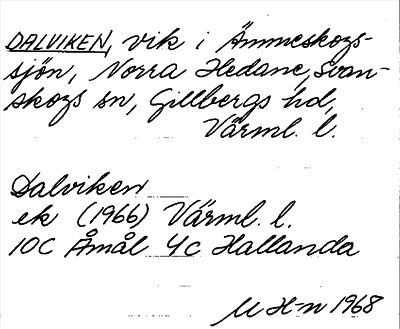 DALVIKEN, vik i Ämmeskogs-
sjön, Norra Hedane, Svan-
skogs sn, Gillbergs hd,
Värml. l.
Dalviken
ek (1966) Värml. l.
10C Åmål 4c Hallanda
M H-n 1968